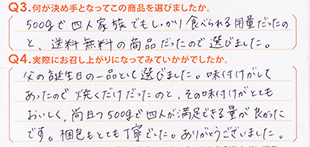 Q3.何が決め手となってこの商品を選びましたか。
500gで四人家族でもしっかり食べられる用量だったの
と、送料無料の商品だったので選びました。
Q4.実際にお召し上がりになってみていかがでしたか。
父の誕生日の一品として選びました。味付けがして
あったので焼くだけだったのと、その味付けがとても
おいしく、尚且つ500gで四人が満足できる量が良かった
です。梱包もとても丁寧でした。ありがとうございました。